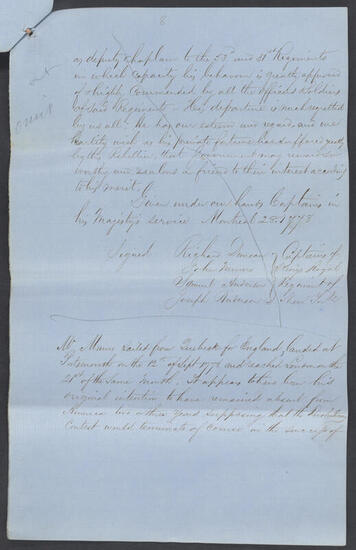 8
out
omit
as deputy chaplain to the 53d and 31st Regiments
in which capacity his behavior is greatly approved
& highly commended by all the Officers & soldiers
of said Regiments. His departure is much regretted
by us all. He has our esteem and regard and we
heartily wish as his private fortune has suffered greatly
by this Rebellion, that Government may reward so
worthy and zealous a friend to their interest according
to his merit.
Given under our hands Captains in
his Majesty's service Montreal 28. 1778
Signed Richard Duncan Captains of
John Munro Sirs Royal
Samuel Anderson Regiment of
Joseph Anderson New York
Mr Munro sailed from Quebeck for England, landed at
Portsmouth on the 12th of Sept 1778 and reached London on the
21st of the same month. It appears to have been his
original intention to have remained absent from
America two or three years supposing that the Revolutionary
Contest would terminate of course in the success of